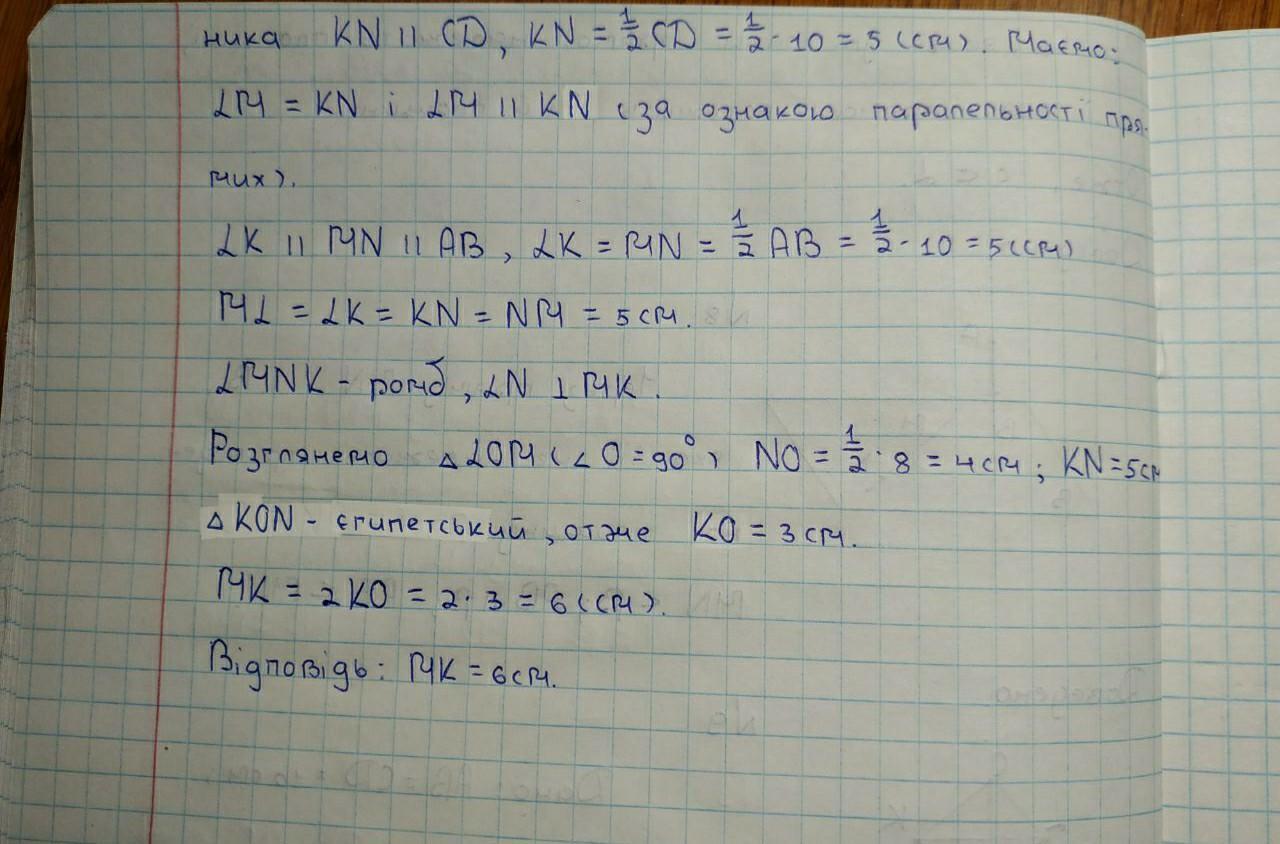 ника KN || CD, KN = 1/2 CD = 1/2 · 10 = 5 (см). Маємо:
LM = KN і LM || KN (за ознакою паралельності пря-
мих).
LK || MN || AB, LK = MN = 1/2 AB = 1/2 · 10 = 5(см)
ML = LK = KN = NM = 5 см.
LMNK - ромб, LN ⊥ MK.
Розглянемо △ LOM (∠O = 90°) NO = 1/2 · 8 = 4 см; KN = 5см
△ KON - єгипетський, отже KO = 3 см.
MK = 2KO = 2 · 3 = 6 (см).
Відповідь: MK = 6см.